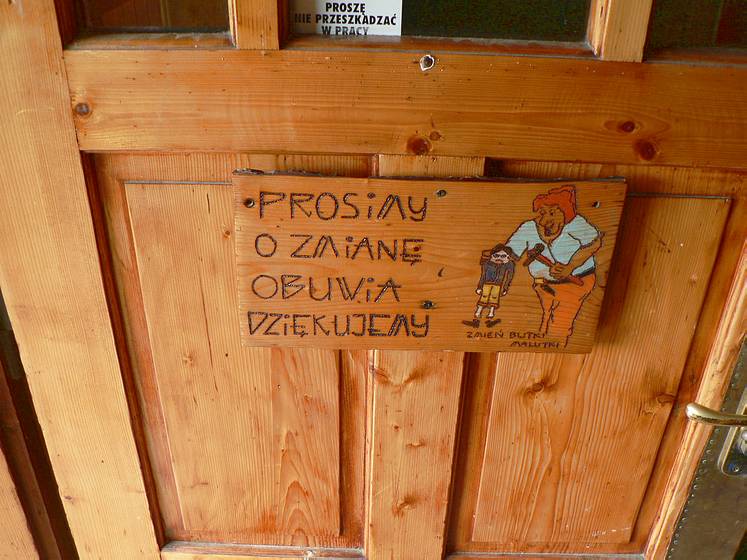 PROSZĘ
NIE PRZESZKADZAĆ
W PRACY
PROSiMY
O ZMiANĘ
OBUWiA
DZiĘKUJEMY
ZMIEŃ BUTKI
MALUTKI